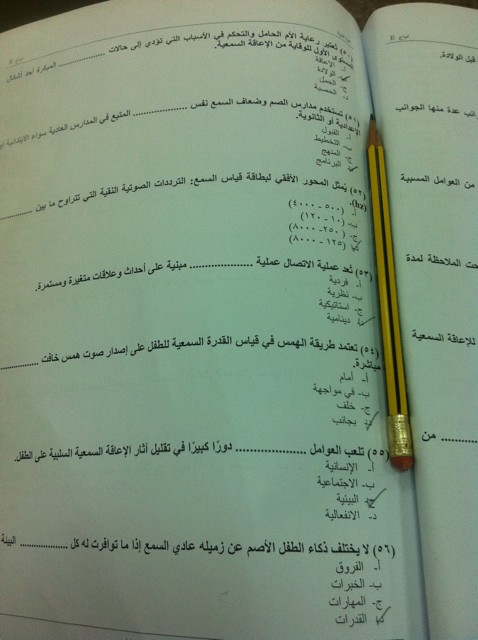 (٥٠) تعتبر رعاية الأم الحامل والتحكم في الأسباب التي تؤدي إلى حالات .................. المبكرة احد أشكال
المستوى الأول للوقاية من الإعاقة السمعية.
أ- الإعاقة
ب- الولادة
ج- الحمل
د- الحسية
(٥١) تستخدم مدارس الصم وضعاف السمع نفس .................. المتبع في المدارس العادية سواء الابتدائية
الإعدادية أو الثانوية.
أ- القبول
ب- التخطيط
ج- المنهج
د- البرنامج
(٥٢) يُمثل المحور الأفقي لبطاقة قياس السمع: الترددات الصوتية النقية التي تتراوح ما بين ..................
(hz).
أ- (٥٠٠ - ٤٠٠٠)
ب- (١٠ - ١٢٠)
ج- (٢٥٠ - ٨٠٠٠)
د- (١٢٥ - ٨٠٠٠)
(٥٣) تُعد عملية الاتصال عملية .................. مبنية على أحداث وعلاقات متغيرة ومستمرة.
أ- فردية
ب- نظرية
ج- استاتيكية
د- دينامية
(٥٤) تعتمد طريقة الهمس في قياس القدرة السمعية للطفل على إصدار صوت همس خافت ..................
مباشرة.
أ- أمام
ب- في مواجهة
ج- خلف
د- بجانب
(٥٥) تلعب العوامل .................. دورًا كبيرًا في تقليل آثار الإعاقة السمعية السلبية على الطفل.
أ- الإنسانية
ب- الاجتماعية
ج- البيئية
د- الانفعالية
(٥٦) لا يختلف ذكاء الطفل الأصم عن زميله عادي السمع إذا ما توافرت له كل .................. البيئة
أ- الفروق
ب- الخبرات
ج- المهارات
د- القدرات
قبل الولادة.
عدة منها الجوانب
من العوامل المسببة
الملاحظة لمدة
للإعاقة السمعية
.................. من